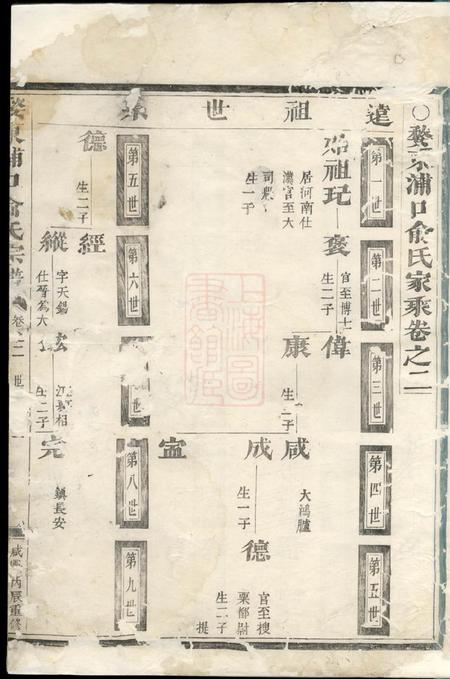 婺東浦口俞氏家乘卷之二
遠祖世系
第一世
第二世
第三世
第四世
第五世
始祖玘
居河南仕
漢官至大
司農
生一子
衮
官至博士
生二子
偉
康
生二子
咸
大鴻臚
成
生一子
德
官至搜
粟都尉
生二子
提
第五世
第六世
第八世
第九世
德
生二子
經
縱
字天錫
仕晉為大
玄
江夏相
生二子
完
鎮長安
婺東浦口俞氏宗譜
卷之二
世
咸豐丙辰重修